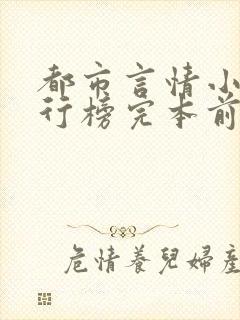 都市言情小
行榜完本前
危情養兒婦產